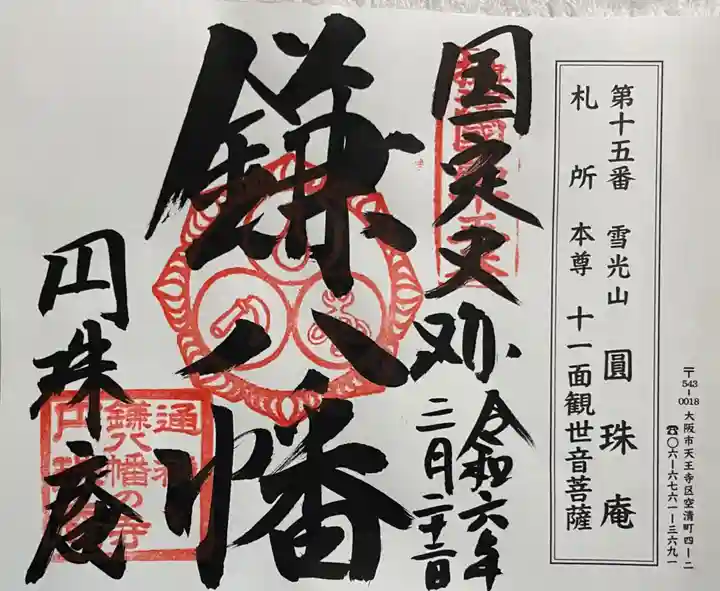 第十五番　雪光山　圓珠庵
札所　本尊　十一面観世音菩薩
〒543-0018 大阪市天王寺区空清町四ー二
☎〇六ー六七六一ー三六九一
国定史跡
令和六年
三月二十二日
鎌八幡
円珠庵
通称
鎌八幡の寺